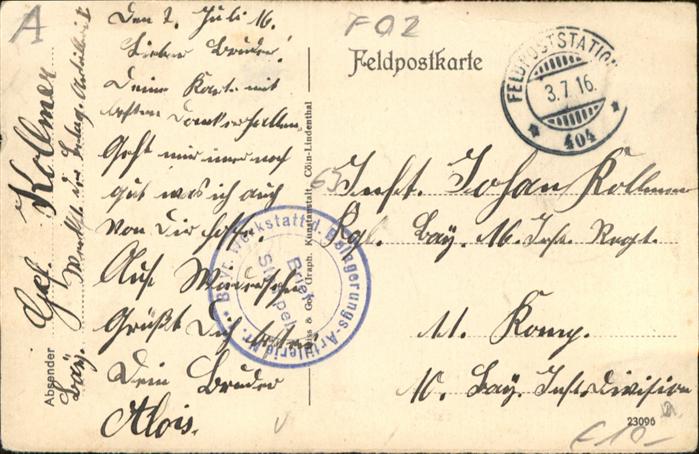 A
F02
Den 2. Juli 16.
Lieber Bruder!
Deine Karte mit
besten Dank erhalten
Geht mir immer noch
gut was ich auch
von Dir hoffe.
Auf Wiedersehn
Grüßt Dich bestens
Dein Bruder
Alois.
Feldpostkarte
FELDPOSTSTATION
3.7.16.
* 404 *
65
Inft. Johan Kollmer
Kgl. Bay. 16. Inf. Regt.
11. Komp.
10. Bay. Inft. Division
23096
£10-
Absender
Gef. Kollmer
Bay. Werkstatt der Belag. Artillerie
Bayr. Werkstatt d. Belagerungs-Artillerie Nr.
Brief
Stempel
& Co., Graph. Kunstanstalt, Cöln-Lindenthal